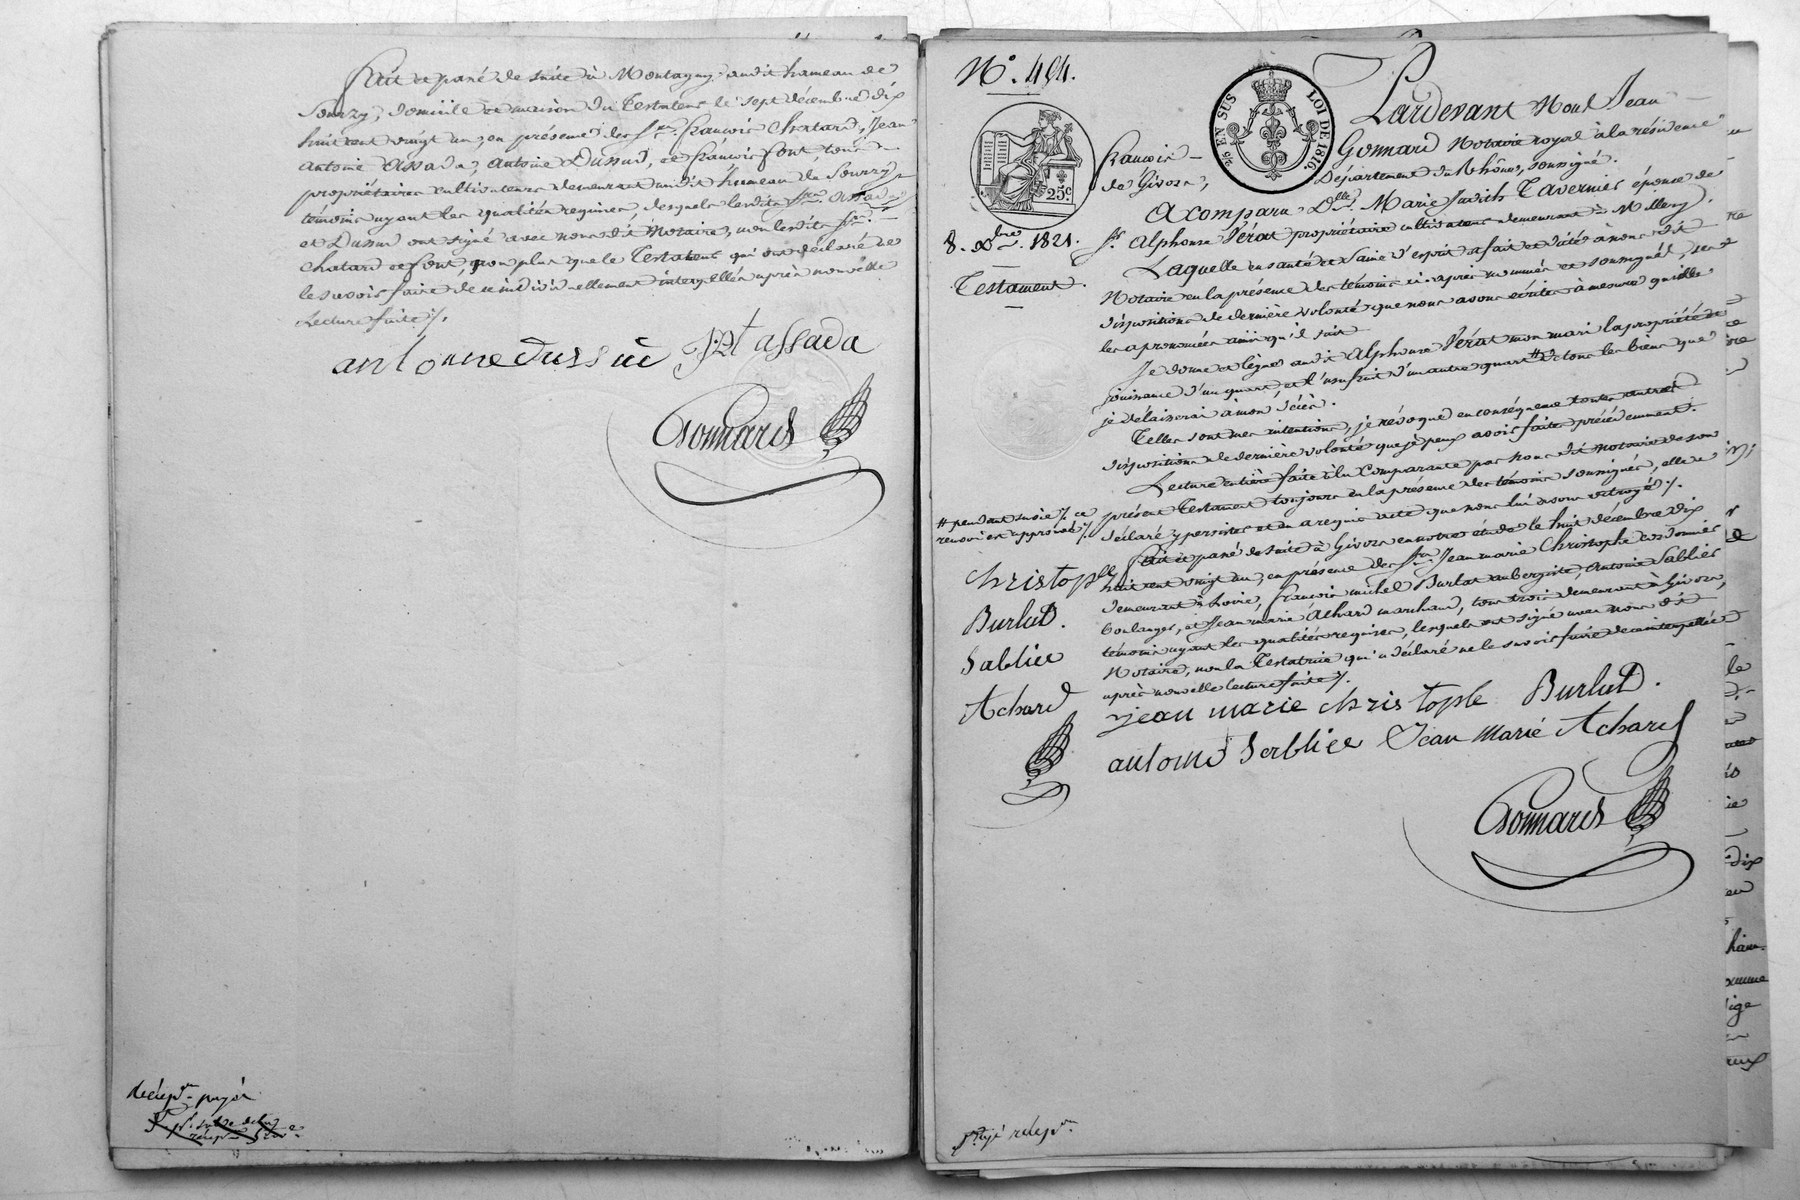 Fait et passé de suite à Montagny audit hameau de
Sourzy, domicile et maison du Testateur le sept décembre dix
huit cent vingt un, en présence des Srs. François Chatard, Jean
Antoine Assada, Antoine Dussud, et François font tous
propriétaires cultivateurs demeurant audit hameau de Sourzy,
témoins ayant les qualités requises, desquels lesdits Srs. Assada
et Dussud ont signé avec nous dit Notaire, non lesdits Srs.
Chatard et font, non plus que le Testateur qui ont déclaré ne
le savoir faire de ce individuellement interpellés après nouvelle
Lecture faite ./.
antonne dussud J: At assada
Gonnard
recepon payé
No. 494.
5/2 EN SUS LOI DE 1816.
25c.
8. Xbre. 1821.
Testament.
Pardevant Mont Jean
François Gonnard Notaire royal à la résidence
de Givors, Département du Rhône, soussigné.
A comparu Dlle. Marie Judith Tavernier épouse de
Sr. Alphonse Pérat propriétaire cultivateur demeurant à Millery.
Laquelle en santé et saine d'esprit a fait et dicté à nous dit
Notaire en la présence des témoins ci-après nommés et soussignés, ses
dispositions de dernière volonté que nous avons écrites à mesure qu'elle
les a prononcées ainsi qu'il suit
Je donne et lègue audit Alphonse Pérat mon mari la propriété et
jouissance d'un quart, et l'usufruit d'un autre quart # de tous les biens que
je délaisserai à mon décès.
Telles sont mes intentions, je révoque en conséquence toutes autres
dispositions de dernière volonté que je peux avoir faites précédemment.
Lecture entière faite à la Comparante par nous dit notaire de son
présent Testament toujours en la présence des témoins soussignés, elle a
déclaré y persister et en a requis acte que nous lui avons octroyé ./.
# pendant sa vie ./. ce
renvoi est approuvé ./.
Fait et passé de suite à Givors en notre étude le huit décembre dix
huit cent vingt un, en présence des Srs. Jean marie Christophe cordonnier
demeurant à Loire, François michel Burlat aubergiste, Antoine Sablier
boulanger, et Jean marie Achard marchand, tous trois demeurant à Givors,
témoins ayant les qualités requises, lesquels ont signé avec nous dit
Notaire, non la Testatrice qui a déclaré ne le savoir faire de ce interpellée
après nouvelle lecture faite ./.
Christople
Burlat.
Sablier
Achard
jean marie christople Burlat.
antoine Sablier Jean Marie Achard
Gonnard
payé recepon.